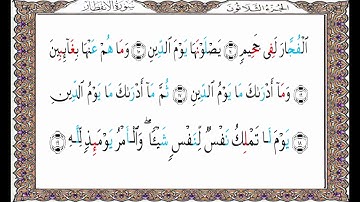 الجزء الثلاثون سورة الانفطار
ٱلۡفُجَّارَ لَفِي جَحِيمٖ ١٤ يَصۡلَوۡنَهَا يَوۡمَ ٱلدِّينِ ١٥ وَمَا هُمۡ عَنۡهَا بِغَآئِبِينَ
١٦ وَمَآ أَدۡرَىٰكَ مَا يَوۡمُ ٱلدِّينِ ١٧ ثُمَّ مَآ أَدۡرَىٰكَ مَا يَوۡمُ ٱلدِّينِ
١٨ يَوۡمَ لَا تَمۡلِكُ نَفۡسٞ لِّنَفۡسٖ شَيۡـٔٗاۖ وَٱلۡأَمۡرُ يَوۡمَئِذٖ لِّلَّهِ ١٩